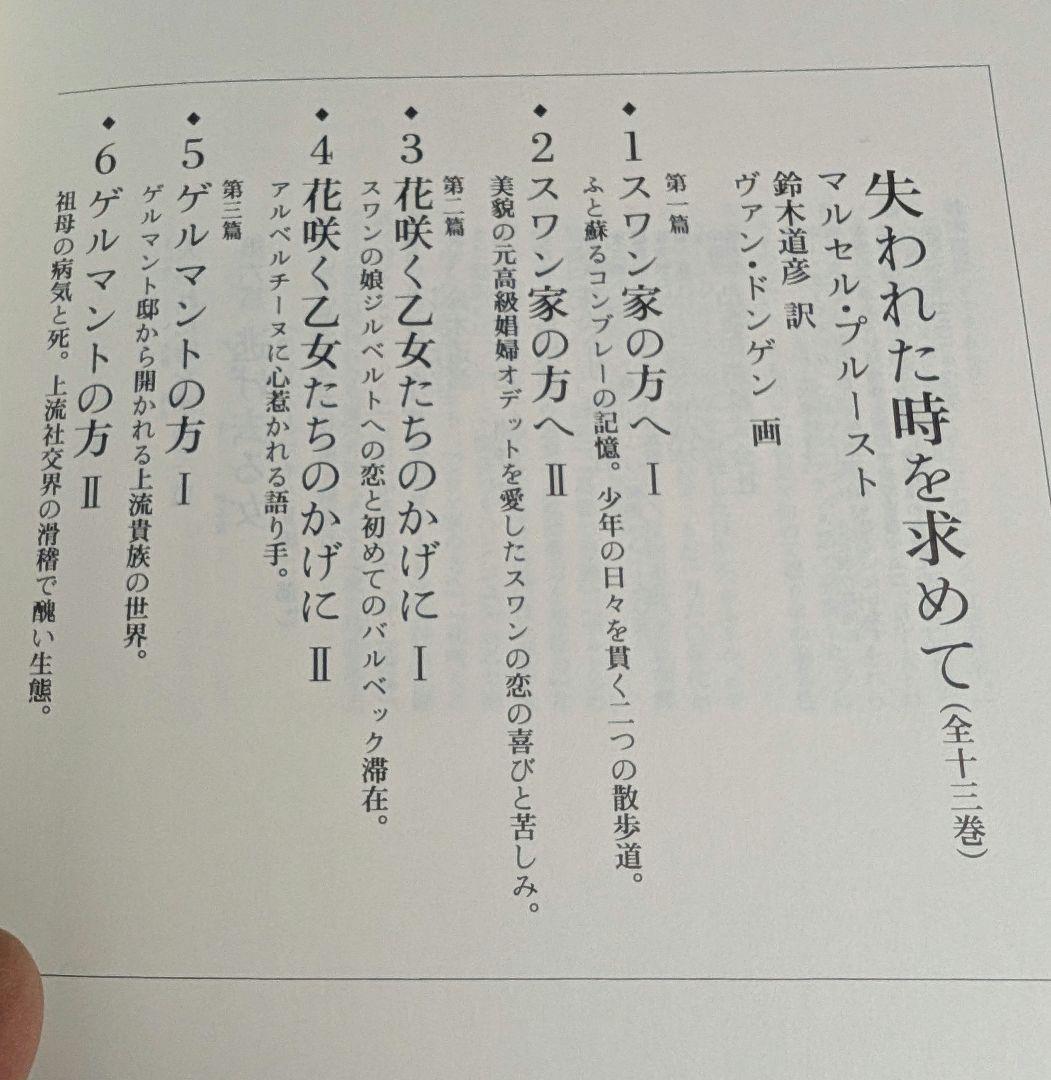 失われた時を求めて(全十三巻)
マルセル・プルースト
鈴木道彦 訳
ヴァン・ドンゲン 画
第一篇
◆1 スワン家の方へ Ⅰ
ふと蘇るコンブレーの記憶。少年の日々を貫く二つの散歩道。
◆2 スワン家の方へ Ⅱ
美貌の元高級娼婦オデットを愛したスワンの恋の喜びと苦しみ。
第二篇
◆3 花咲く乙女たちのかげに Ⅰ
スワンの娘ジルベルトへの恋と初めてのバルベック滞在。
◆4 花咲く乙女たちのかげに Ⅱ
アルベルチーヌに心惹かれる語り手。
第三篇
◆5 ゲルマントの方 Ⅰ
ゲルマント邸から開かれる上流貴族の世界。
◆6 ゲルマントの方 Ⅱ
祖母の病気と死。上流社交界の滑稽で醜い生態。